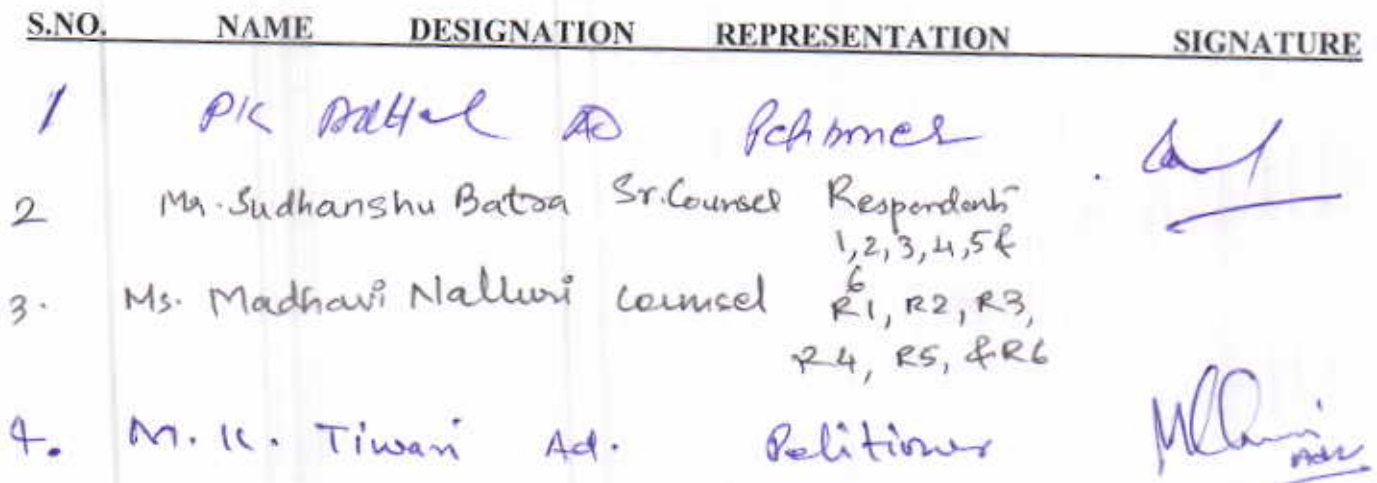 S.NO. NAME DESIGNATION REPRESENTATION SIGNATURE
1 PK Mittal AD Petitioner
2 Mr. Sudhanshu Batra Sr. Counsel Respondents
1, 2, 3, 4, 5 &
6
3. Ms. Madhavi Nalluri Counsel R1, R2, R3,
R4, R5, & R6
4. M. K. Tiwari Ad. Petitioner
Adv